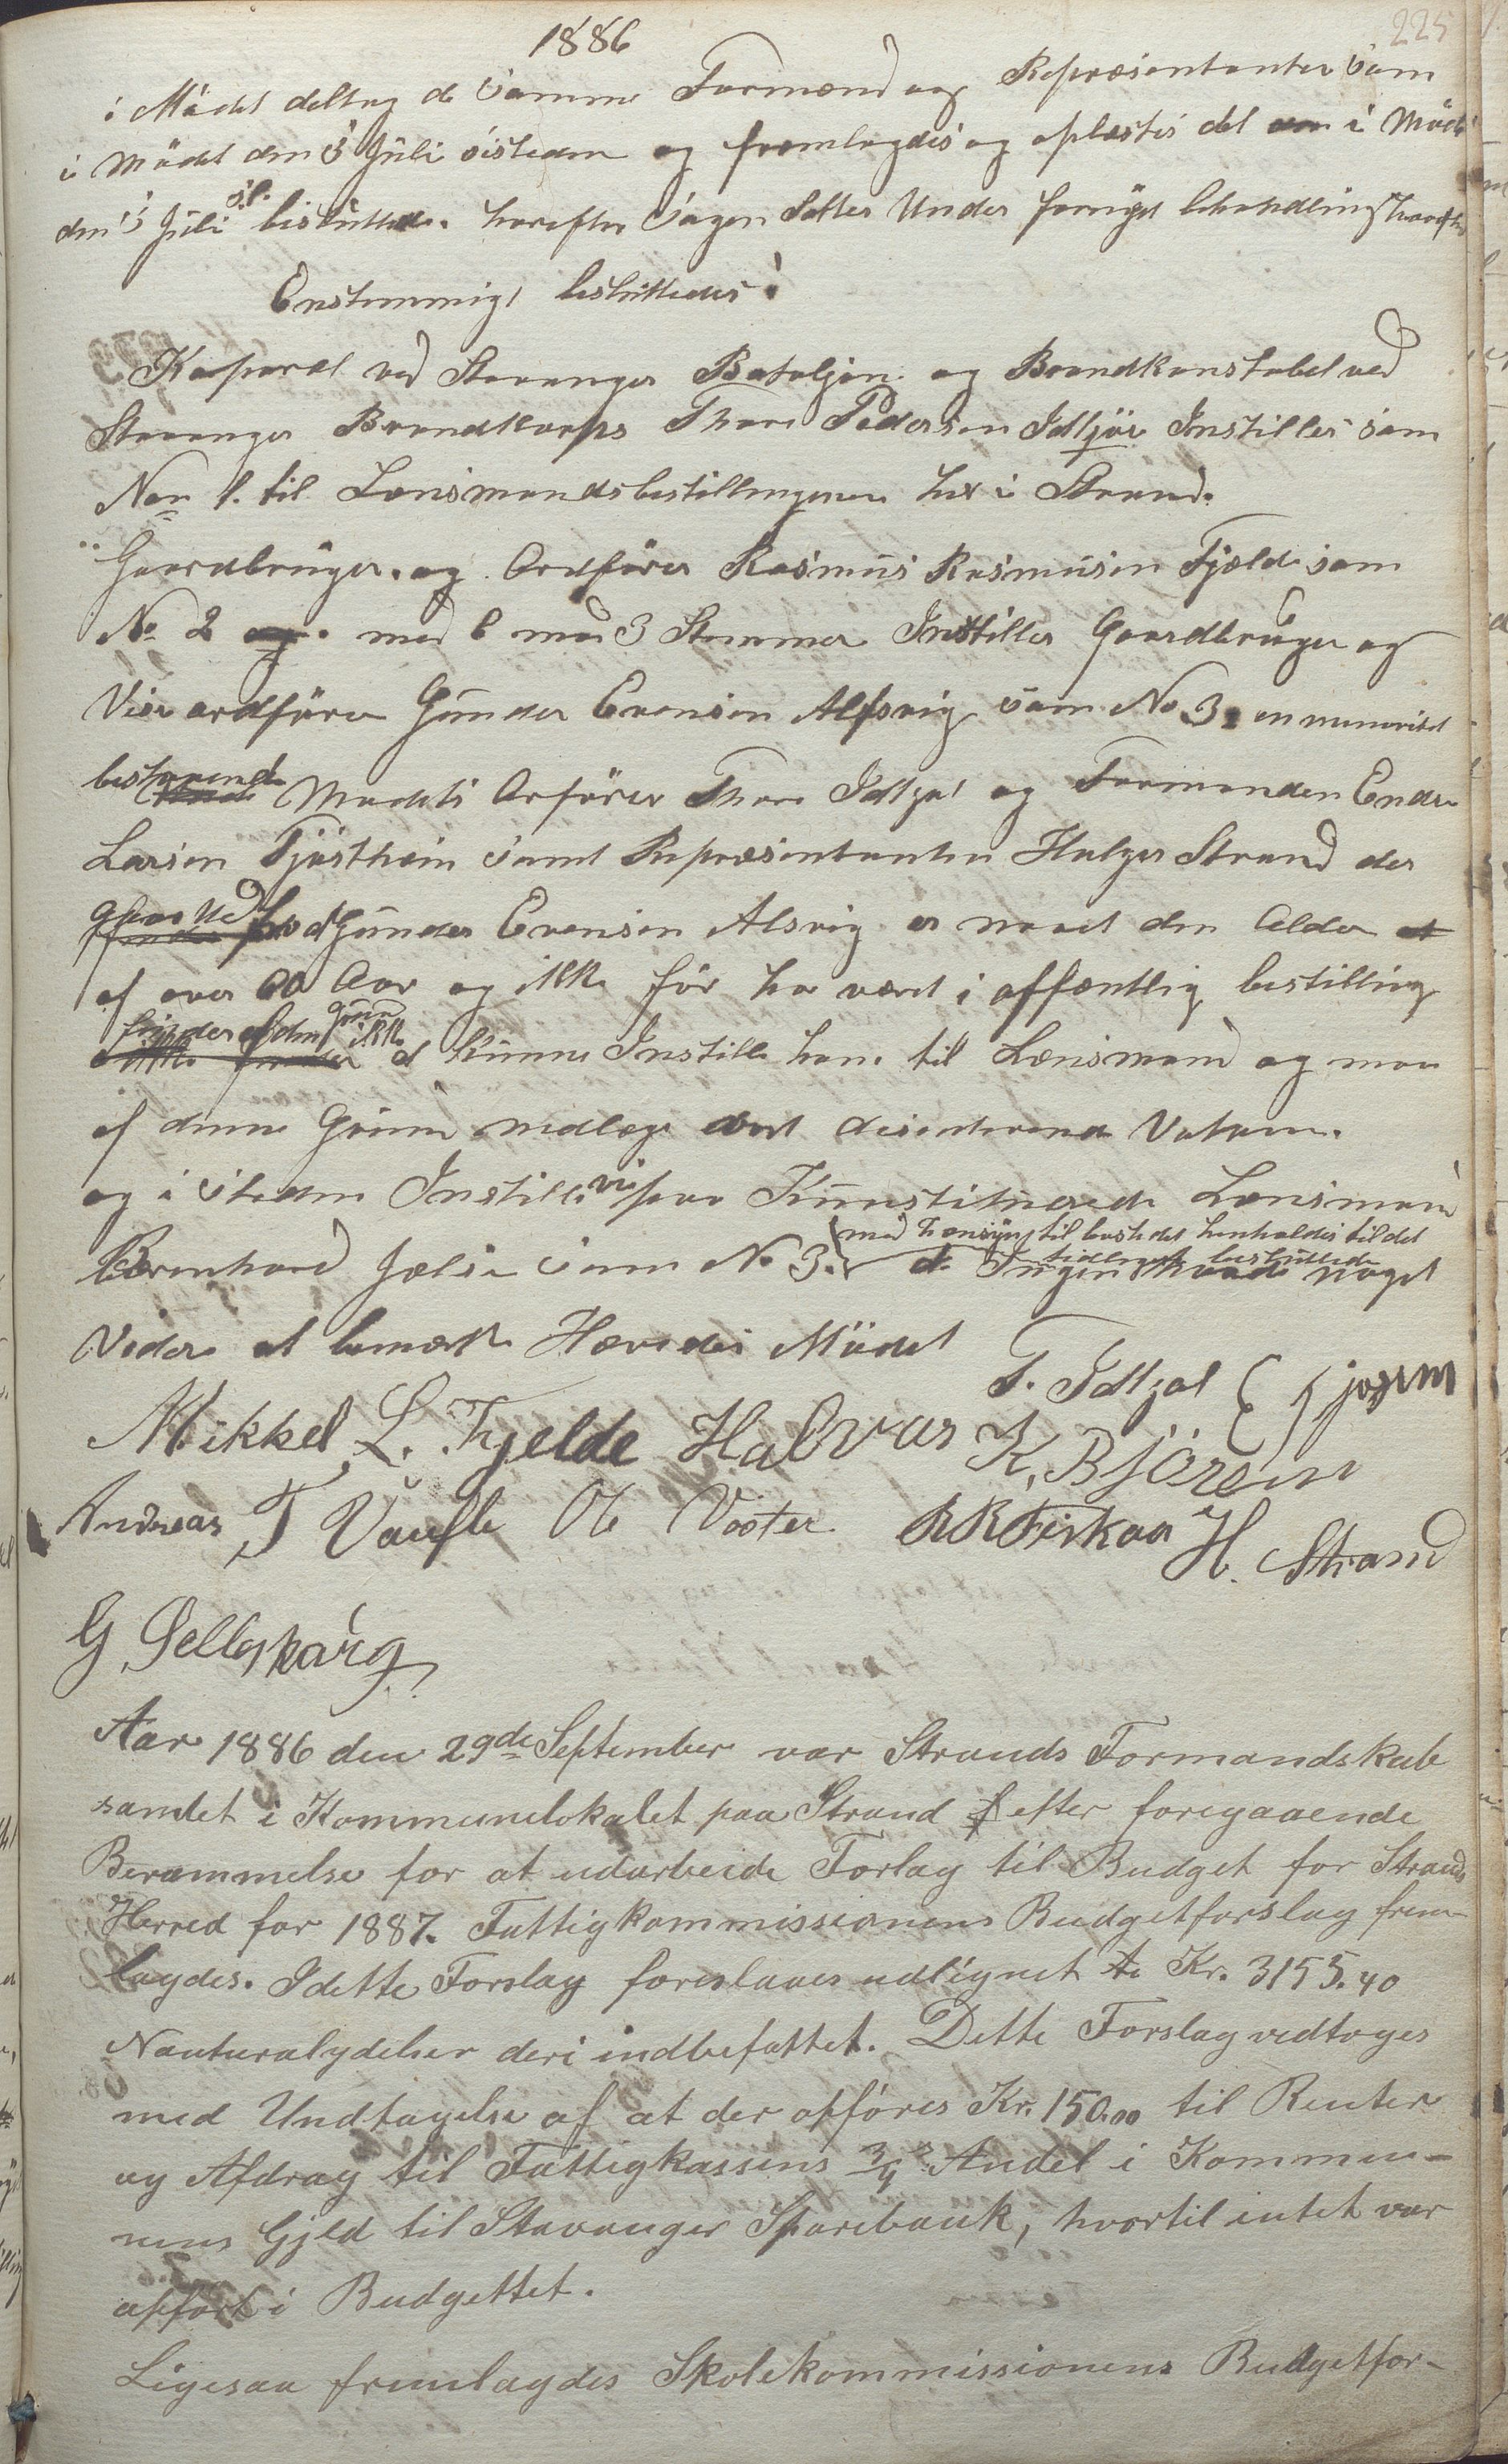 1886
225
i Mødet deltog de samme Formænd og Repræsentanter som
i Mødet den 5 Juli sisteden og fremlagdes og oplæstes det i Møde
den 5 Juli s.l. besluttede. hvorefter Sagen sattes Under fornyet behandling hvorefter
Enstemmigt besluttedes:
Kaporal ved Stavanger Bataljon og Brandkonstabel ved
Stavanger Brandkorps Thore Pedersen Idtjøe Instilles som
Nor 1. til Lensmandsbestillingenen her i Strand.
Gaardbruger. og Ordfører Rasmus Rasmusen Fjelde som
No 2 og. med 6 mod 3 Stemmer Instilles Gaardbruger og
Vise ordfører Gunder Evensen Alfsvig som No 3. en minoritet
bestaaende Mødets Orfører Thore Idtjøl og Formanden Endre
Larsen Tjøstheim samt Repræsentanten Holger Strand der
Gunder Evensen Alsvig er naaet den Alder
af over 60 Aar og ikke før har været i offentlig bestilling
finder af den grund ikke at kunne Instille ham til Lensmand og maa
af denne Grund nedlægge vort disenterende Votum.
og i steden Instille vi paa Kunstituerede Lensmand
Bernhard Jelse som No 3. med hensyn til bostedet henholdes til det
tidligere besluttede
da Ingen havde noget
Videre at bemærke Hævedes Mødet
T. Idtjøl E Tjøstem
Mikkel L. Fjelde Halvar K. Bjørem
Andreas T Vaule Ole Voster RR Fiskaa H. Strand
G Selleskarg
Aar 1886 den 29de September var Strands Formandskab
samlet i Kommunelokalet paa Strand efter foregaaende
Berammelse for at udarbeide Forlag til Budget for Strands
Herred for 1887. Fattigkommissionens Budgetforslag frem-
lagdes. I dette Forslag foreslaaes udlignet Kr. 3155.40
Nauturalydelser deri indbefattet. Dette Forslag vedtoges
med Undtagelse af at der opføres Kr. 150.00 til Renter
og Afdrag til Fattigkassens 3/4 Andel i Kommu-
nens Gjeld til Stavanger Sparebank, hvortil intet var
opført i Budgettet.
Ligesaa fremlagdes Skolekommissionens Budgetfor-